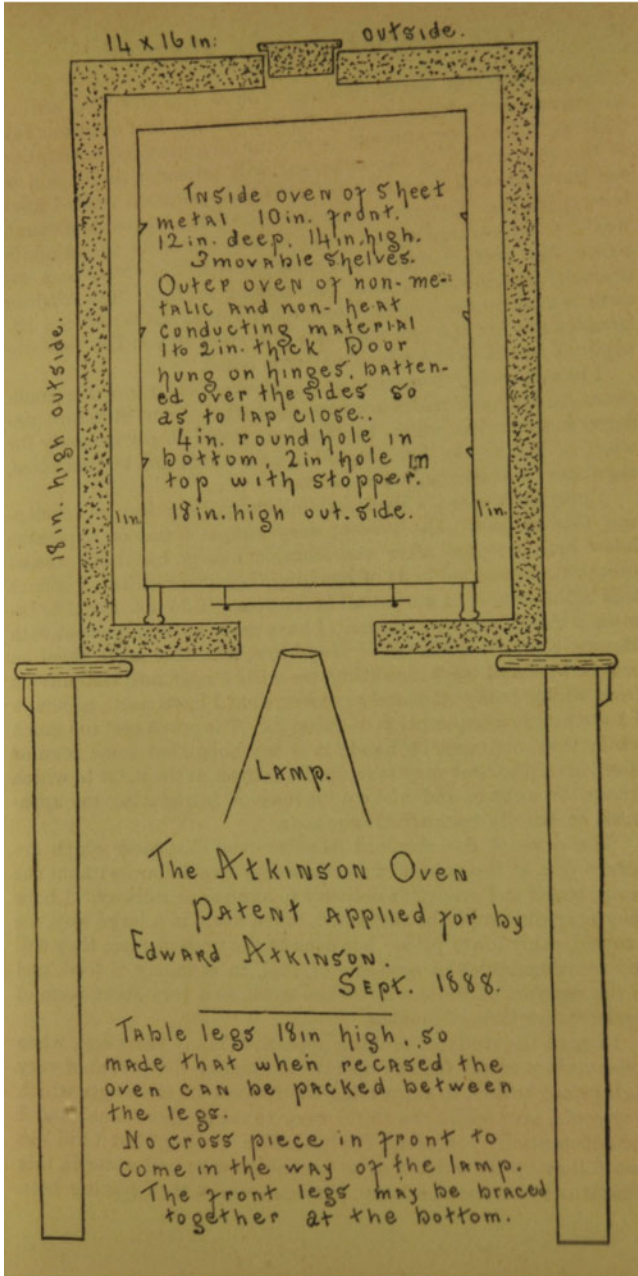 14 x 16 in. outside.
Inside oven of sheet
metal 10 in. front.
12 in. deep. 14 in. high.
3 movable shelves.
Outer oven of non-me-
talic and non-heat
conducting material
1 to 2 in. thick Door
hung on hinges, batten-
ed over the sides so
as to lap close.
4 in. round hole in
bottom, 2 in hole in
top with stopper.
18 in. high out.side.
18 in. high outside.
1 in.
1 in.
Lamp.
The Atkinson Oven
Patent applied for by
Edward Atkinson.
Sept. 1888.
Table legs 18in high, so
made that when recased the
oven can be packed between
the legs.
No cross piece in front to
come in the way of the lamp.
The front legs may be braced
together at the bottom.